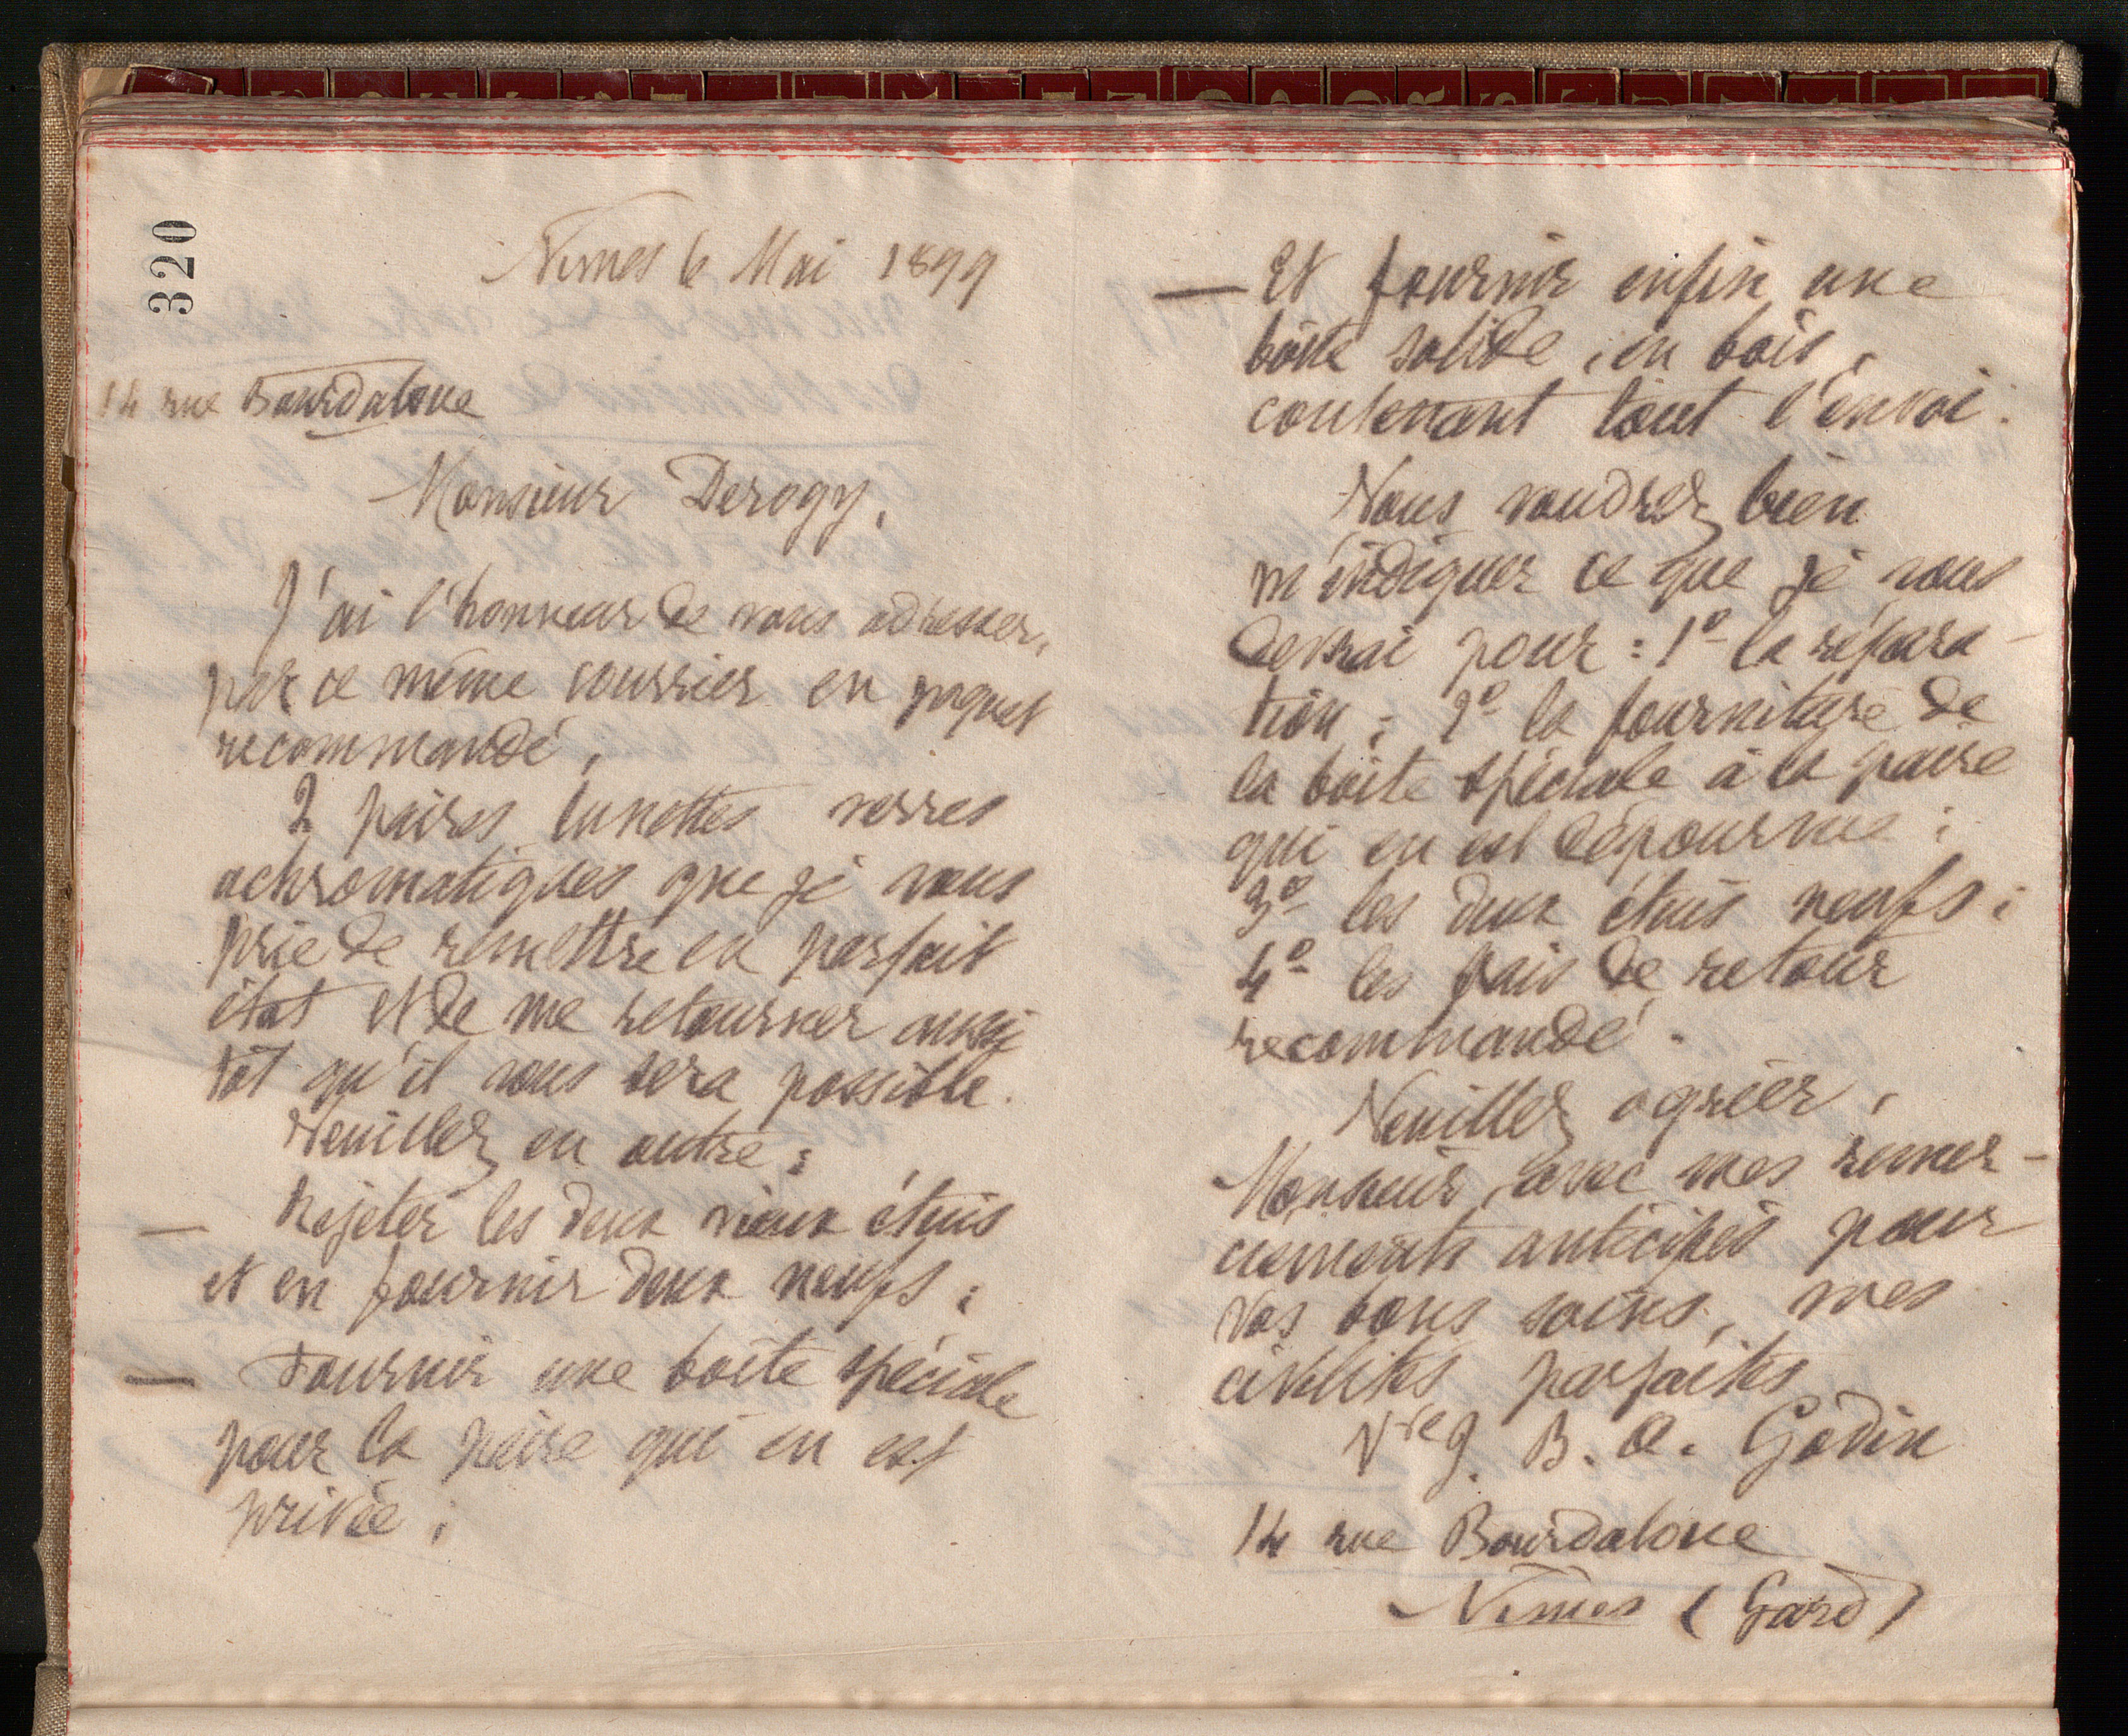 320
Nimes le Mai 1899
14 rue Bourdaloue
Monsieur Derogy,
J'ai l'honneur de vous adresser,
par ce même courrier en paquet
recommandé,
2 paires lunettes verres
achromatiques que je vous
prie de remettre en parfait
état et de me retourner aussi
tôt qu'il vous sera possible.
Veuillez en outre :
— Rejeter les deux vieux étuis
et en fournir deux neufs ;
— Fournir une boîte spéciale
pour la paire qui en est
privée ;
— Et fournir enfin une
boîte solide, en bois,
contenant tout l'envoi.
Vous voudrez bien
m'indiquer ce que je vous
devrai pour : 1º la répara-
tion ; 2º la fourniture de
la boîte spéciale à la paire
qui en est dépourvue ;
3º les deux étuis neufs ;
4º les frais de retour
recommandé.
Veuillez agréer,
Monsieur, avec mes remer-
ciements anticipés pour
vos bons soins, mes
civilités parfaites
Vve J. B. A. Godin
14 rue Bourdaloue
Nîmes (Gard)